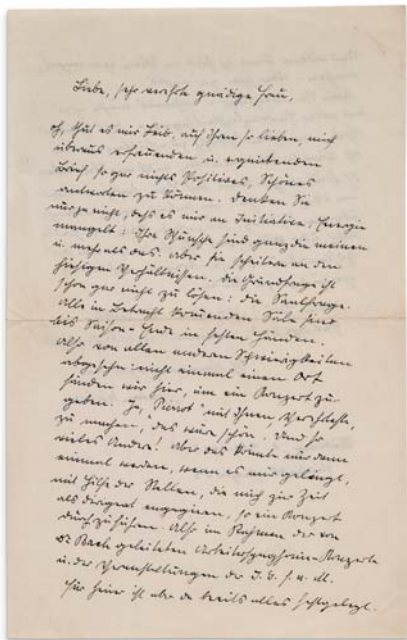 Liebe, sehr verehrte gnädige Frau,
es thut es mir Leid, auf Ihren so lieben, mich
überaus erfreuenden u. ergreifenden
Brief so gar nichts Positives, Schönes
antworten zu können. Denken Sie
nur ja nicht, dass es mir an Initiative, Energie
mangelt: Ihre Wünsche sind ganz die meinen
u. mehr als das. Aber sie scheitern an den
hiesigen Verhältnissen. Die Grundfrage ist
schon gar nicht zu lösen: die Saalfrage.
Alle in Betracht kommenden Säle sind
bis Saison-Ende in festen Händen.
Also von allen anderen Schwierigkeiten
abgesehn: nicht einmal einen Ort
fänden wir hier, um ein Konzert zu
geben. Ja, "Pierrot" mit Ihnen, Verehrteste,
zu machen, das wäre schön. Und so
vieles Andere! Aber das könnte nur dann
einmal werden, wenn es mir gelänge,
mit Hilfe der Stellen, die mich zur Zeit
als Dirigent engagieren, so ein Konzert
durchzuführen. Also im Rahmen der von
Dr Bach geleiteten Arbeitersymphonie-Konzerte
u. der Veranstaltungen der I. G. f. n. M.
Für heuer ist aber da bereits alles festgelegt.